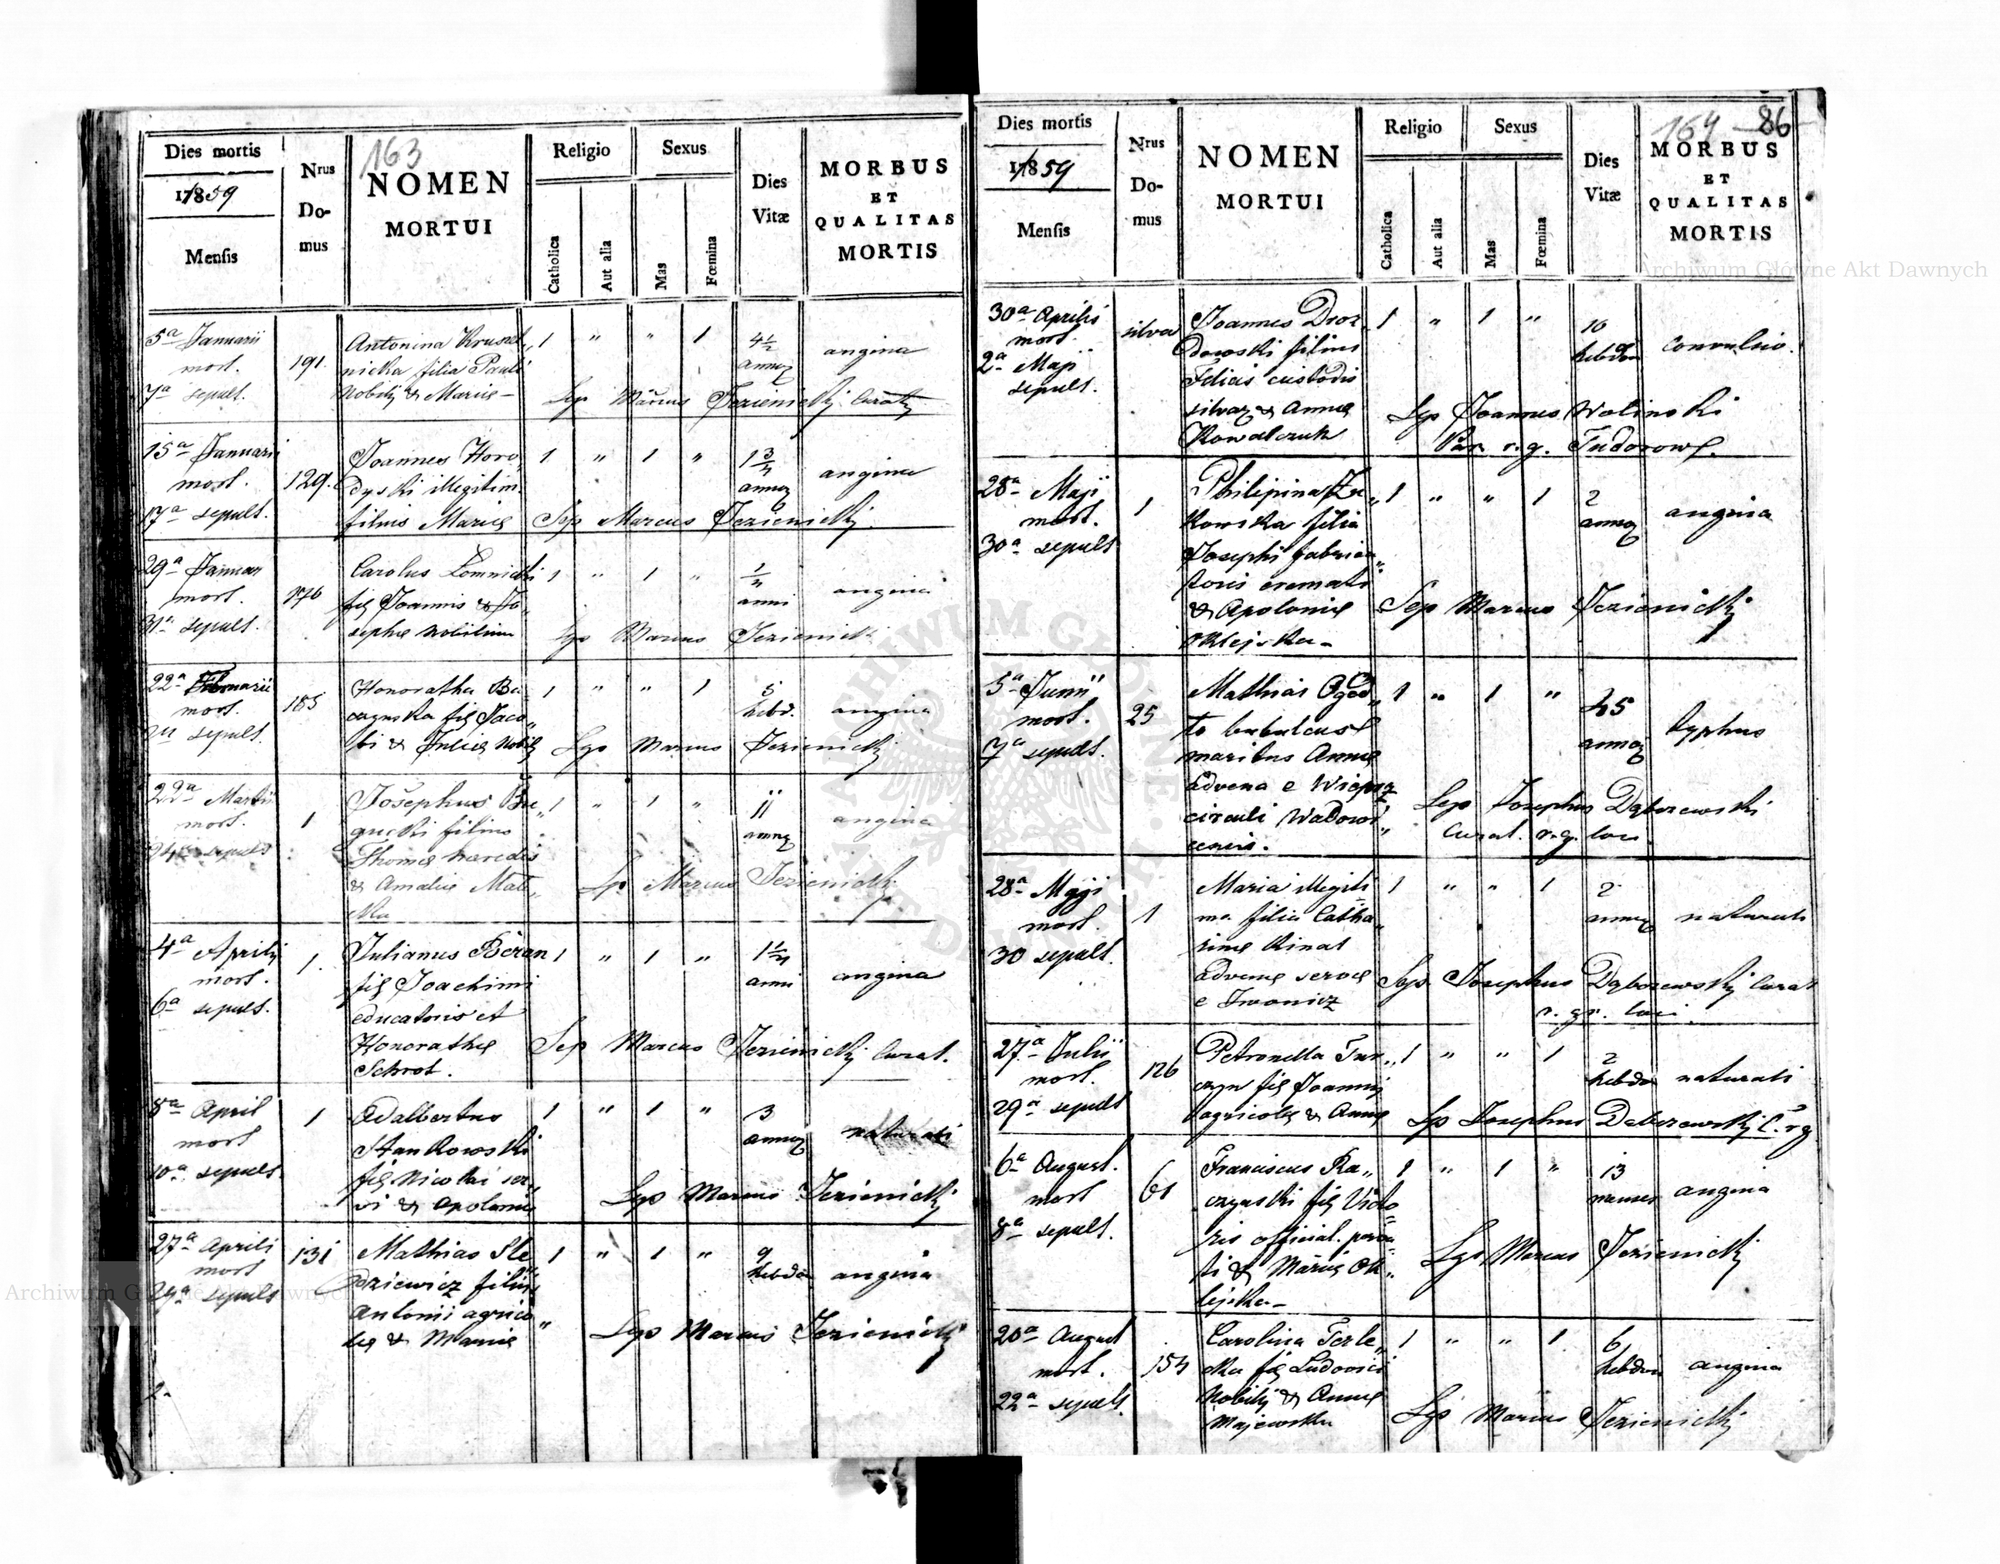 163
Dies mortis
1859
Mensis
Nrus
Do-
mus
NOMEN
MORTUI
Religio
Catholica
Aut alia
Sexus
Mas
Fœmina
Dies
Vitæ
MORBUS
ET
QUALITAS
MORTIS
5a Januarii
mort.
7a sepult.
191.
Antonina
nicka filia Pauli
nobilis & Mariæ –
1 „ „ 1
4½
annor
angina
Sep Marcus Jezienicki
15a Januarii
mort.
17a sepult.
129.
Joannes Horo
dyski illegitim.
filius Mariæ
1 „ 1 „
annor
angina
Sep Marcus Jezienicki
29a Januar
mort.
31a sepult.
176
Carolus Lomnicki
fil Joannis & Jo
sephæ nobilium
1 „ 1 „
anni
angina
Sep Marcus Jezienicki
22a Februarii
mort.
sepult.
185
Honoratha Ba
czynska fil Jaco„
bi & Juliæ nobil
1 „ „ 1
5
hebd.
angina
Sep Marcus Jezienicki
22a Martii
mort.
24a sepult
1
Josephus
filius
Thomæ heredis
& Amaliæ
1 „ 1 „
11
annor
angina
Sep Marcus Jezienicki
4a Aprilis
mort.
6a sepult.
1.
Julianus Beran
fil Joachimi
educatoris et
Honorathæ
Schrot.
1 „ 1 „
anni
angina
Sep Marcus Jezienicki Curat.
8a April
mort
10a sepult
1
Adalbertus
Stankowski
fil Nicolai ser„
vi & Apoloniæ
1 „ 1 „
3
annor
naturali
Sep Marcus Jezienicki
27a Aprili
mort
29a sepult
131
Mathias Sle
dziewicz filius
Antonii agrico„
læ & Mariæ
1 „ 1 „
9
hebdom
angina
Sep Marcus Jezienicki
164
86
Dies mortis
1859
Mensis
Nrus
Do-
mus
NOMEN
MORTUI
Religio
Catholica
Aut alia
Sexus
Mas
Fœmina
Dies
Vitæ
MORBUS
ET
QUALITAS
MORTIS
30a Aprilis
mort.
2a Maji
sepult.
silva
Joannes Droz„
dowski filius
Felicis custodis
silvar & Annæ
Kowalczuk
1 „ 1 „
10
hebdom
convulsio.
Sep Joannes Wolinski
Par r.g. Tudorow.
28a Maji
mort.
30a sepult
1
Philipina Zu„
kowska filia
Josephi fabrica„
toris cremati
& Apoloniæ
Oklejska –
1 „ „ 1
2
annor
angina
Sep Marcus Jezienicki
5a Junii
mort.
7a sepult.
25
Mathias Ogod„
to bubulcus
maritus Annæ
advena e Wieprz
circuli Wadowi„
censis.
1 „ 1 „
45
annor
typhus
Sep Josephus Dąbrzewski
Curat. r.g. loci
28a Maji
mort.
30 sepult.
1
Maria illegiti
ma filia Catha„
rinæ Kinal
advenæ servæ
e Iwonicz
1 „ „ 1
2
annor
naturali
Sep Josephus Dąbrzewski Curat
r. gr. loci.
27a Julii
mort.
29a sepult
126
Petronella Tur„
czyn fil Joannis
agricolæ & Annæ
1 „ „ 1
2
hebdom
naturali
Sep Josephus Dąbrzewski C. r g
6a August.
mort
8a sepult.
61
Franciscus Ra„
czynski fil Victo
ris official. priva
ti & Mariæ Ok„
lejska –
1 „ 1 „
13
menses
angina
Sep Marcus Jezienicki
20a August
mort.
22a sepult.
154
Carolina Terle„
cka fil Ludovici
nobilis & Annæ
Majewska
1 „ „ 1
6
hebdom
angina
Sep Marcus Jezienicki
Archiwum Główne Akt Dawnych
Archiwum Główne Akt Dawnych
ARCHIWUM GŁÓWNE AKT DAWNYCH